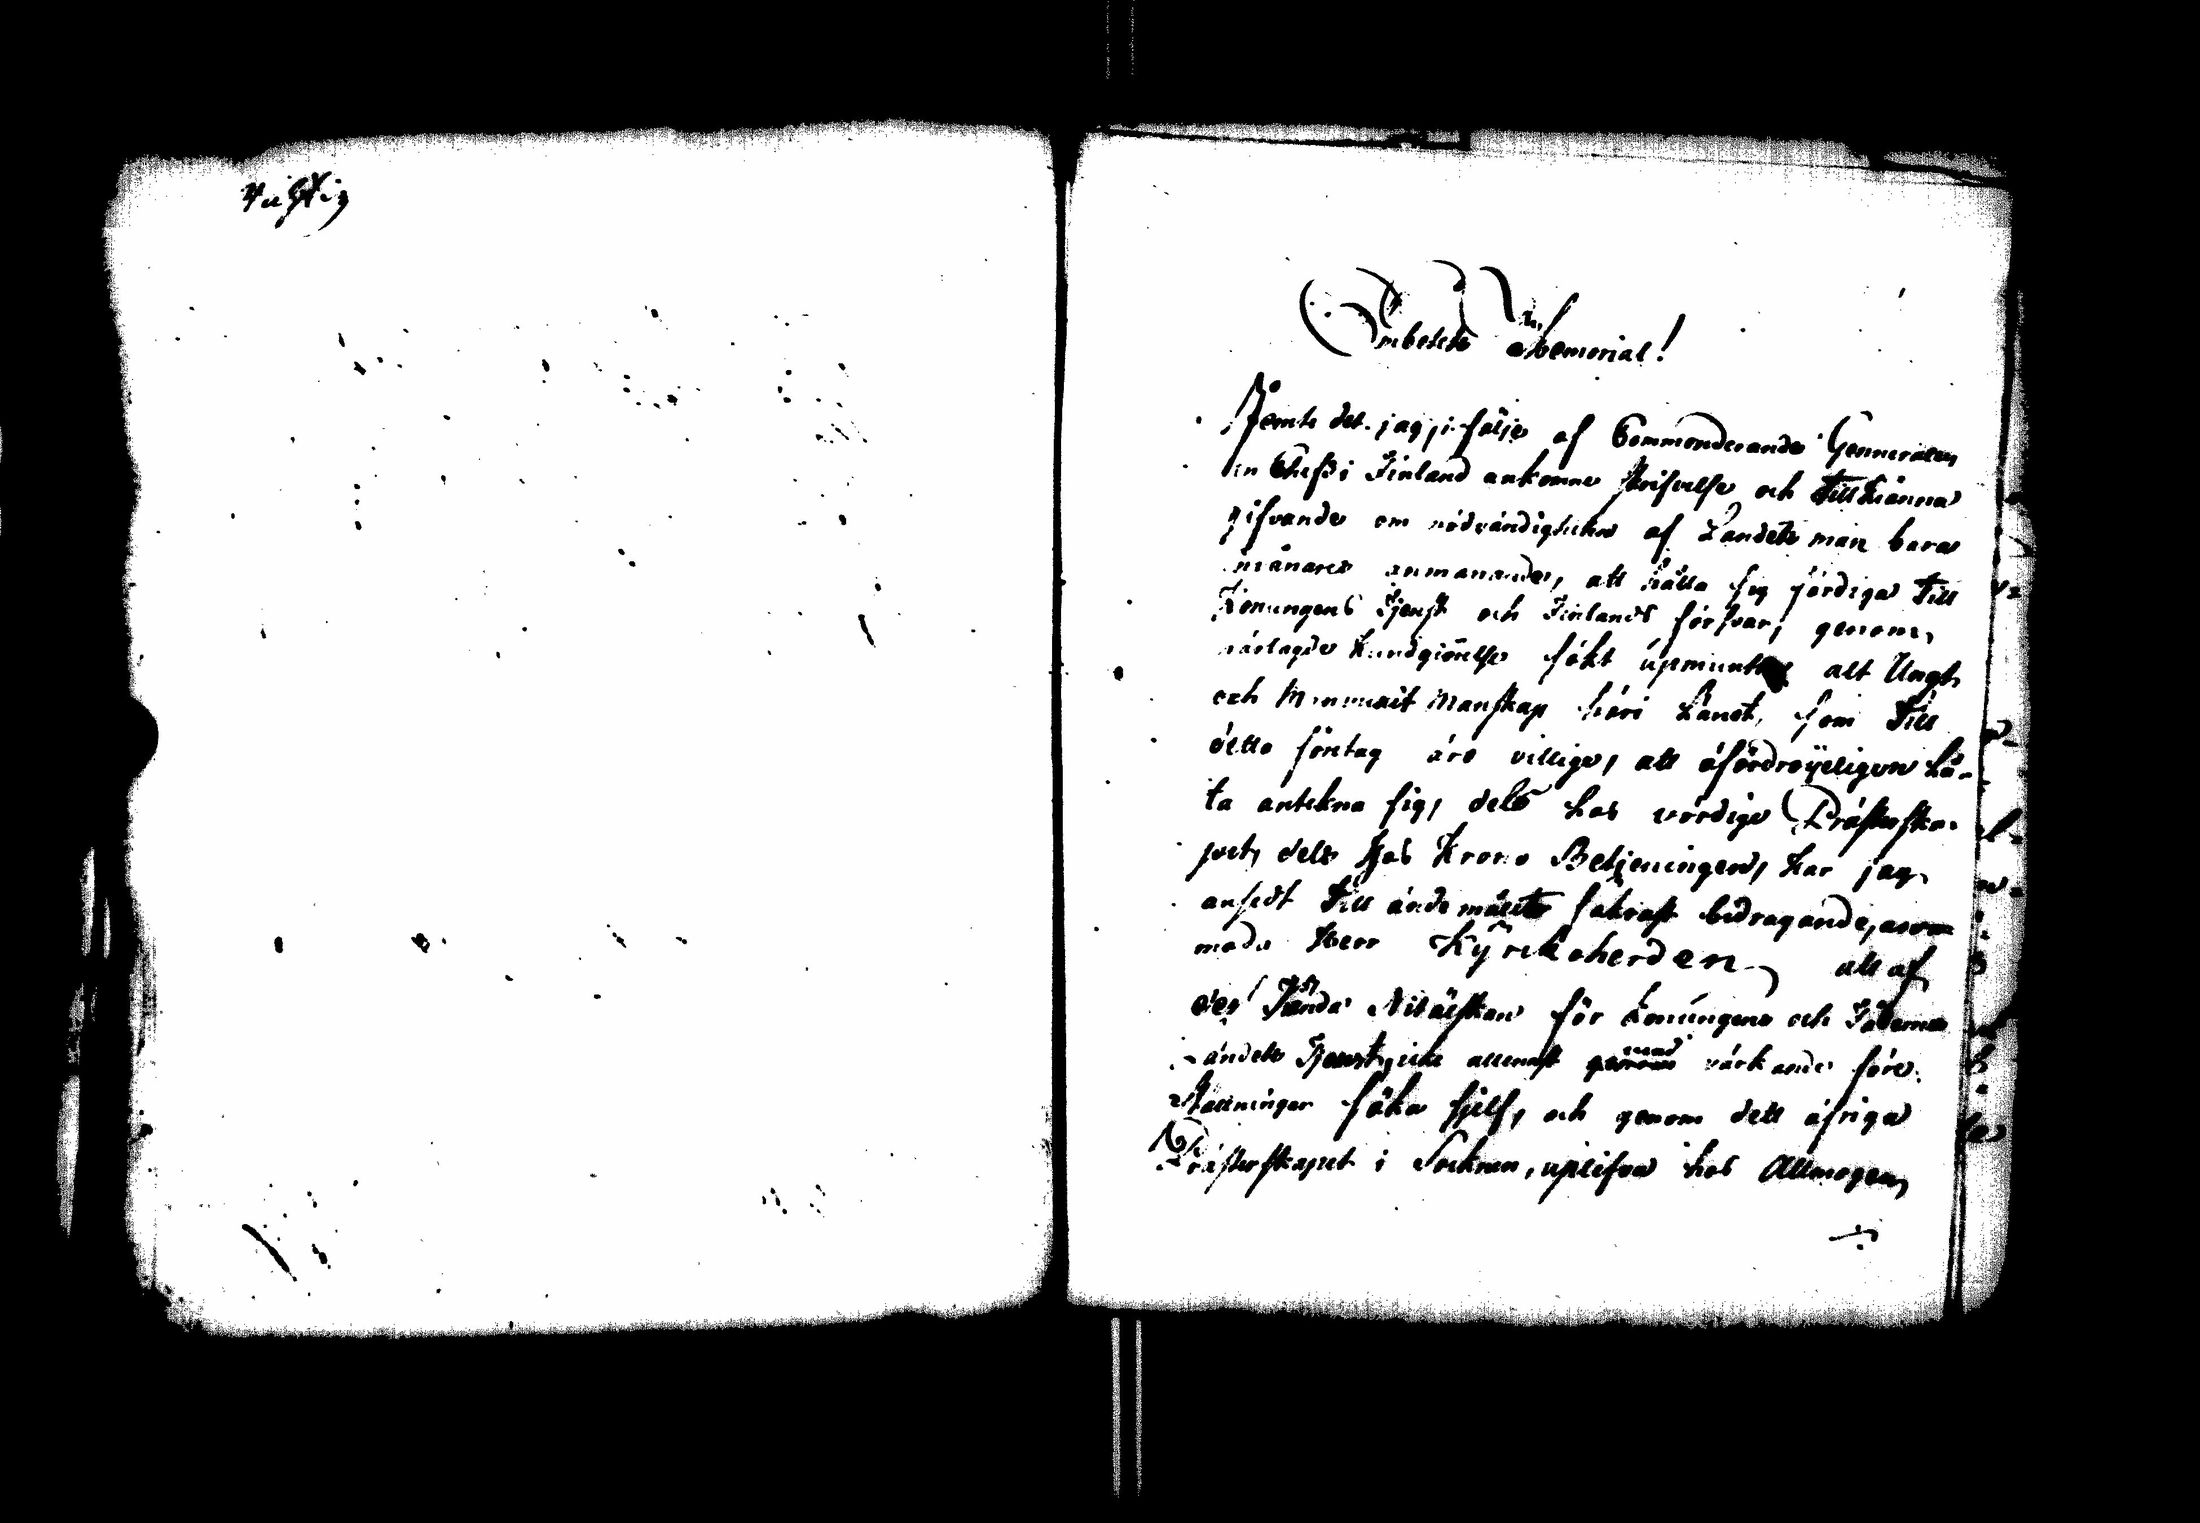 Embetets Memorial!
Jemte det jag, i följe af Commenderande Generalen
en Chefs i Finland ankomne skrifvelse och Tillkiänna
gifvande om nödvändigheten af Landets man bara
månares anmanande, att hålla sig färdiga Till
Konungens Tjenst och Finlands försvar, genom
kundgiörelse sökt upmuntra alt Ungt
och Manskap häri Länet, som Till
detta företag äro villige, att ofördröyeligen lå-
ta antekna sig, dels hos vördige Prästerska-
pet, dels hos Krono Betjeningen, har jag
ansedt Till ändamålets säkrast bidragande, anmo
moda Herr Kyrckoherden att af
des kända Nitälskan för Konungens och Fäderne
ändets Tjenst, icke allenast med värkande före-
stallningar söka sjelf, och genom dett öfriga
Prästerskapet i Socknen, uplifva hos Allmogen